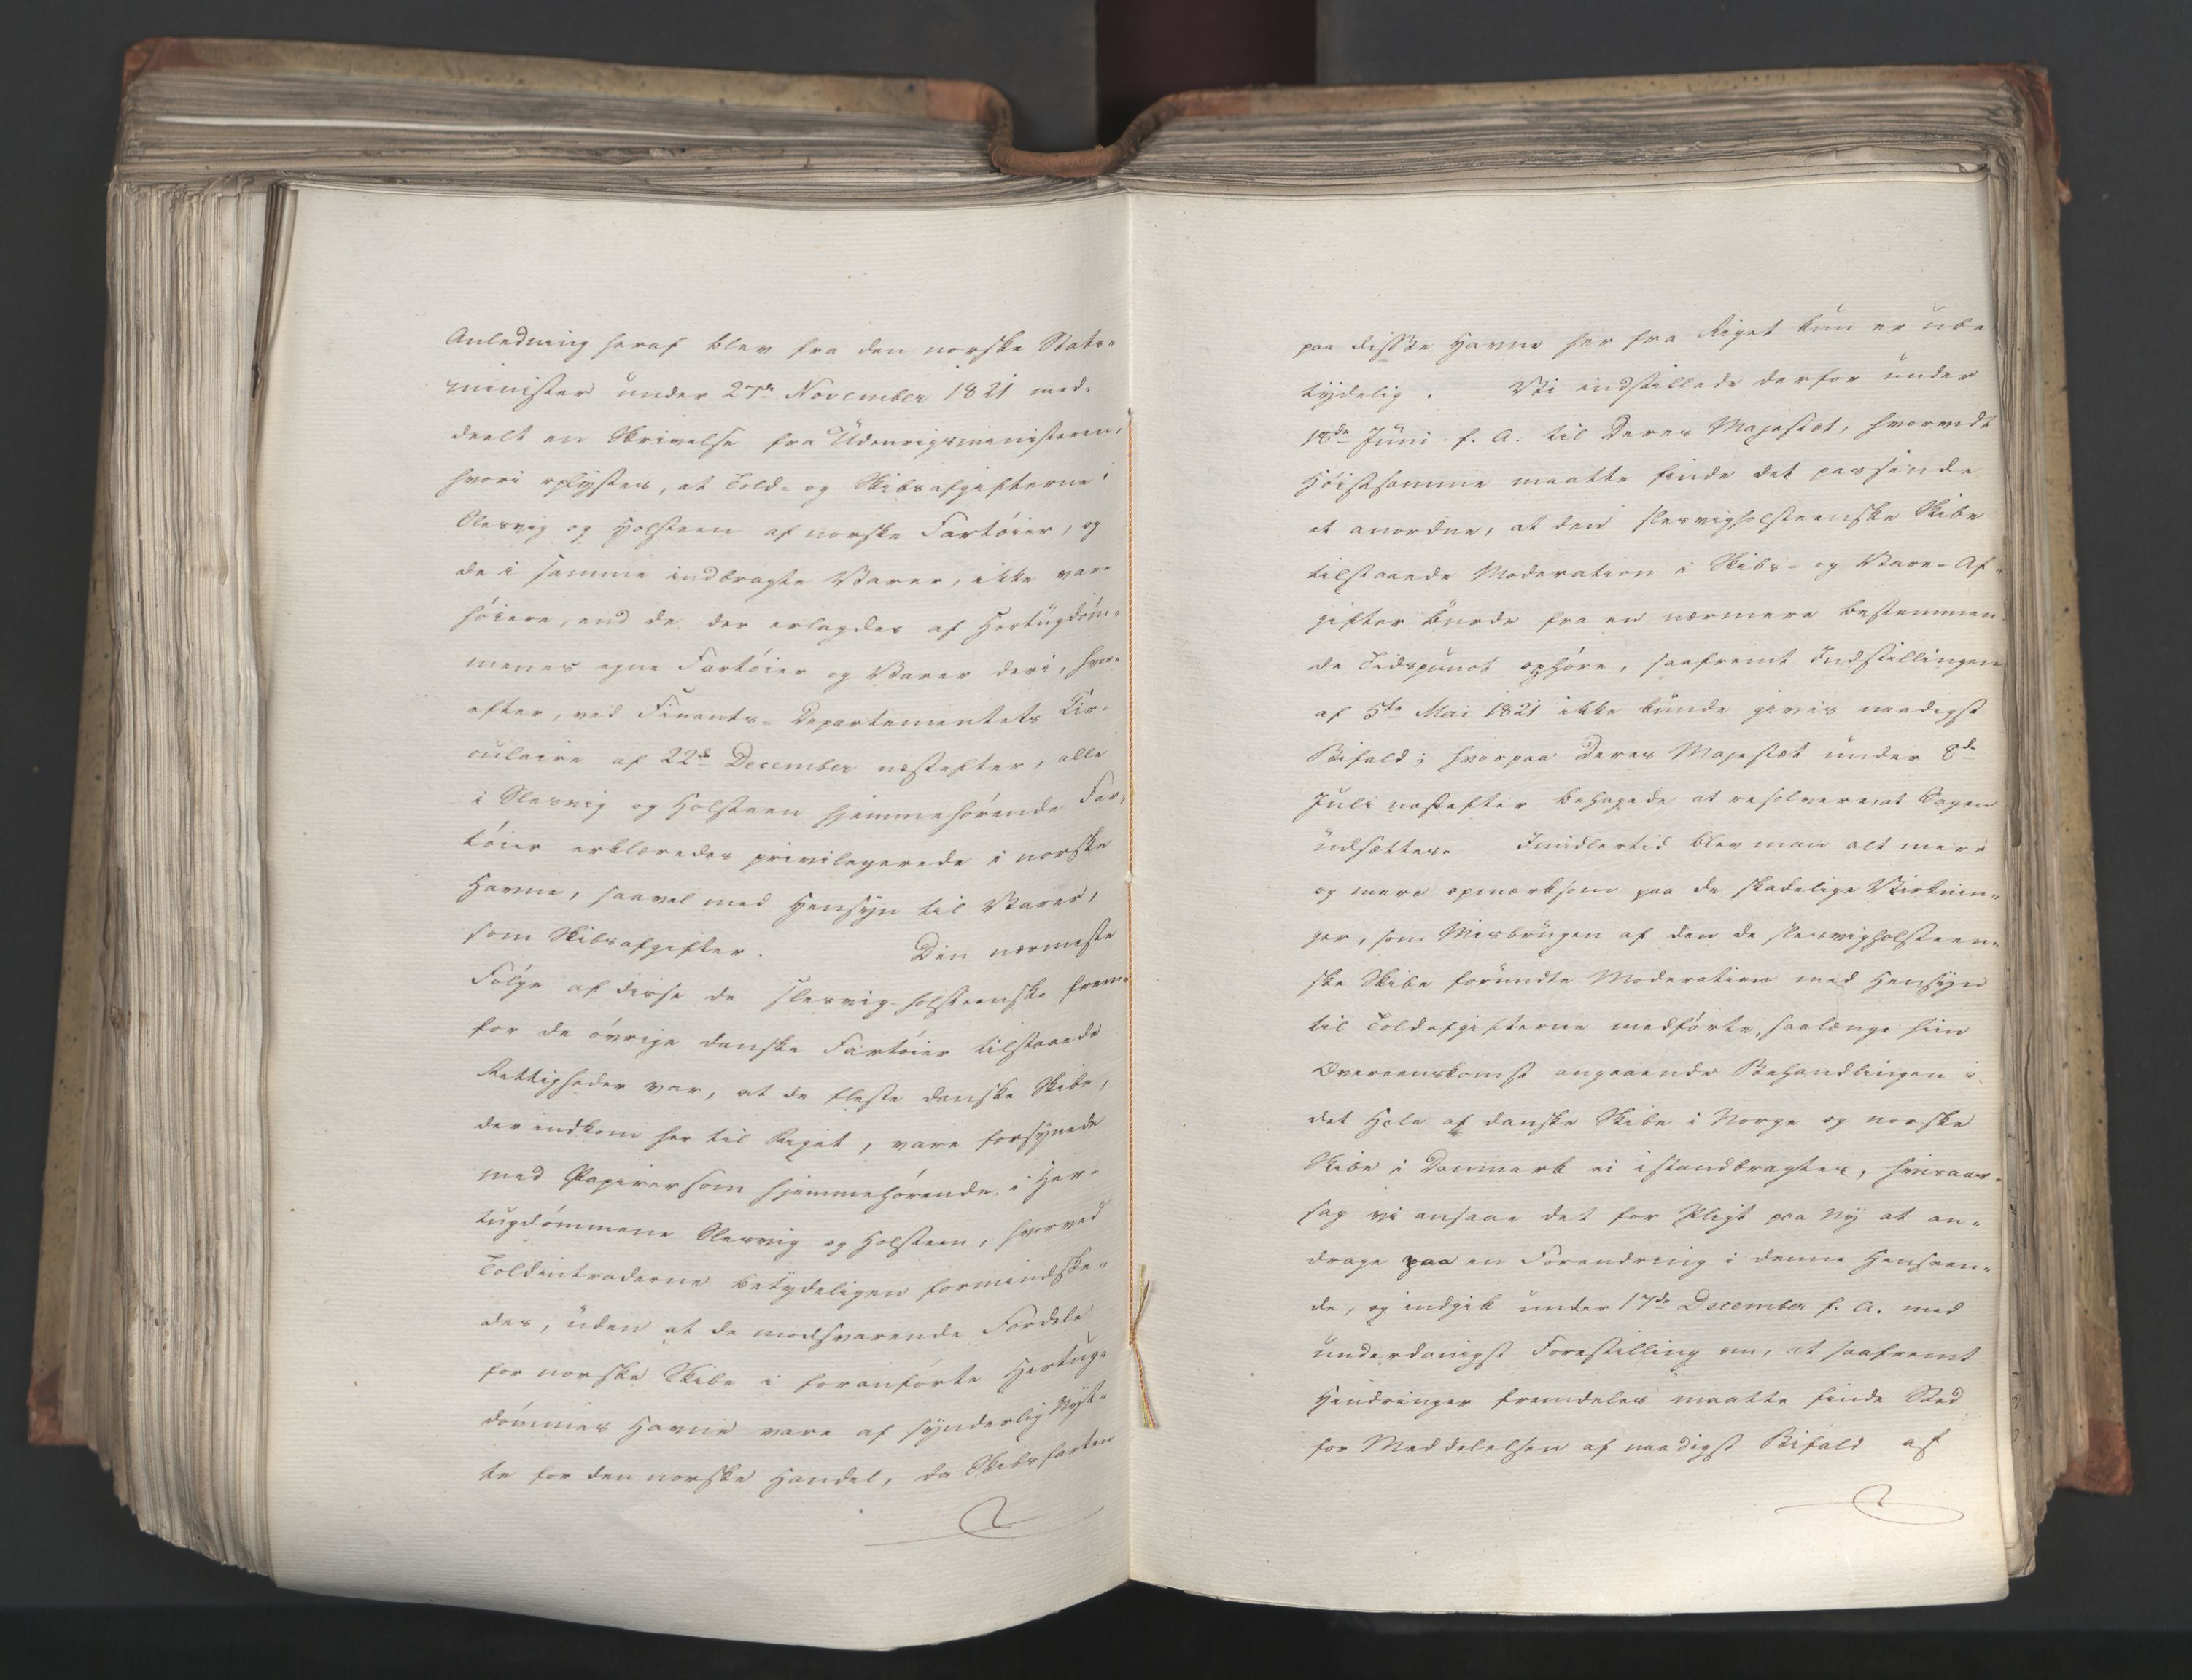 Anledning heraf blev fra den norske Stats-
minister under 27de November 1821 med-
deelt en Skrivelse fra Udenrigsministeren,
hvori oplystes, at Told- og Skibsafgifterne i
Slesvig og Holsteen af norske Fartöier, og
de i samme indbragte Varer, ikke vare
höiere, end de der erlagdes af Hertugdöm-
menes egne Fartöier og Varer deri, hvor-
efter, ved Finants-Departementets Cir-
culaire af 22de December næstefter, alle
i Slesvig og Holsteen hjemmehörende Far-
töier erklæredes privilegerede i norske
Havne, saavel med Hensyn til Varer,
som Skibsafgifter. Den nærmeste
Fölge af disse de slesvig-holsteenske frem-
for de övrige danske Fartöier tilstaaede
Rettigheder var, at de fleste danske Skibe,
der indkom her til Riget, vare forsynede
med Papirer som hjemmehörende i Her-
tugdömmene Slesvig og Holsteen, hvorved
Toldintraderne betydeligen formindske-
des, uden at de modsvarende Fordele
for norske Skibe i foranförte Hertug-
dömmes Havne vare af synderlig Nyt-
te for den norske Handel, da Skibsfarten
paa disse Havne her fra Riget kun er ube
tydelig. Vi indstillede derfor under
18de Juni f. A. til Deres Majestæt, hvorvidt
Höistsamme maatte finde det passende
at anordne, at den slesvigholsteenske Skibe
tilstaaede Moderation i Skibs- og Vare-Af-
gifter burde fra en nærmere bestemmen-
de Tidspunct ophöre, saafremt Indstillingen
af 5te Mai 1821 ikke kunde gives naadigst
Bifald; hvorpaa Deres Majestæt under 8de
Juli næstefter behagede at resolvere, at Sagen
udsættes. Imidlertid blev man alt mere
og mere opmærksom paa de skadelige Virknin-
ger, som Misbrugen af den de slesvigholsteen-
ske Skibe forundte Moderation med Hensyn
til Toldafgifterne medförte, saalænge hiin
Overeenskomst angaaende Behandlingen i
det Hele af danske Skibe i Norge og norske
Skibe i Danmark ei istandbragtes, hvisaar-
sag vi ansaae det for Pligt paa Ny at an-
drage paa en Forandring i denne Henseen-
de, og indgik under 17de December f. A. med
underdanigst Forestilling om, at saafremt
Hindringer fremdeles maatte finde Sted
for Meddelelsen af naadigst Bifald af